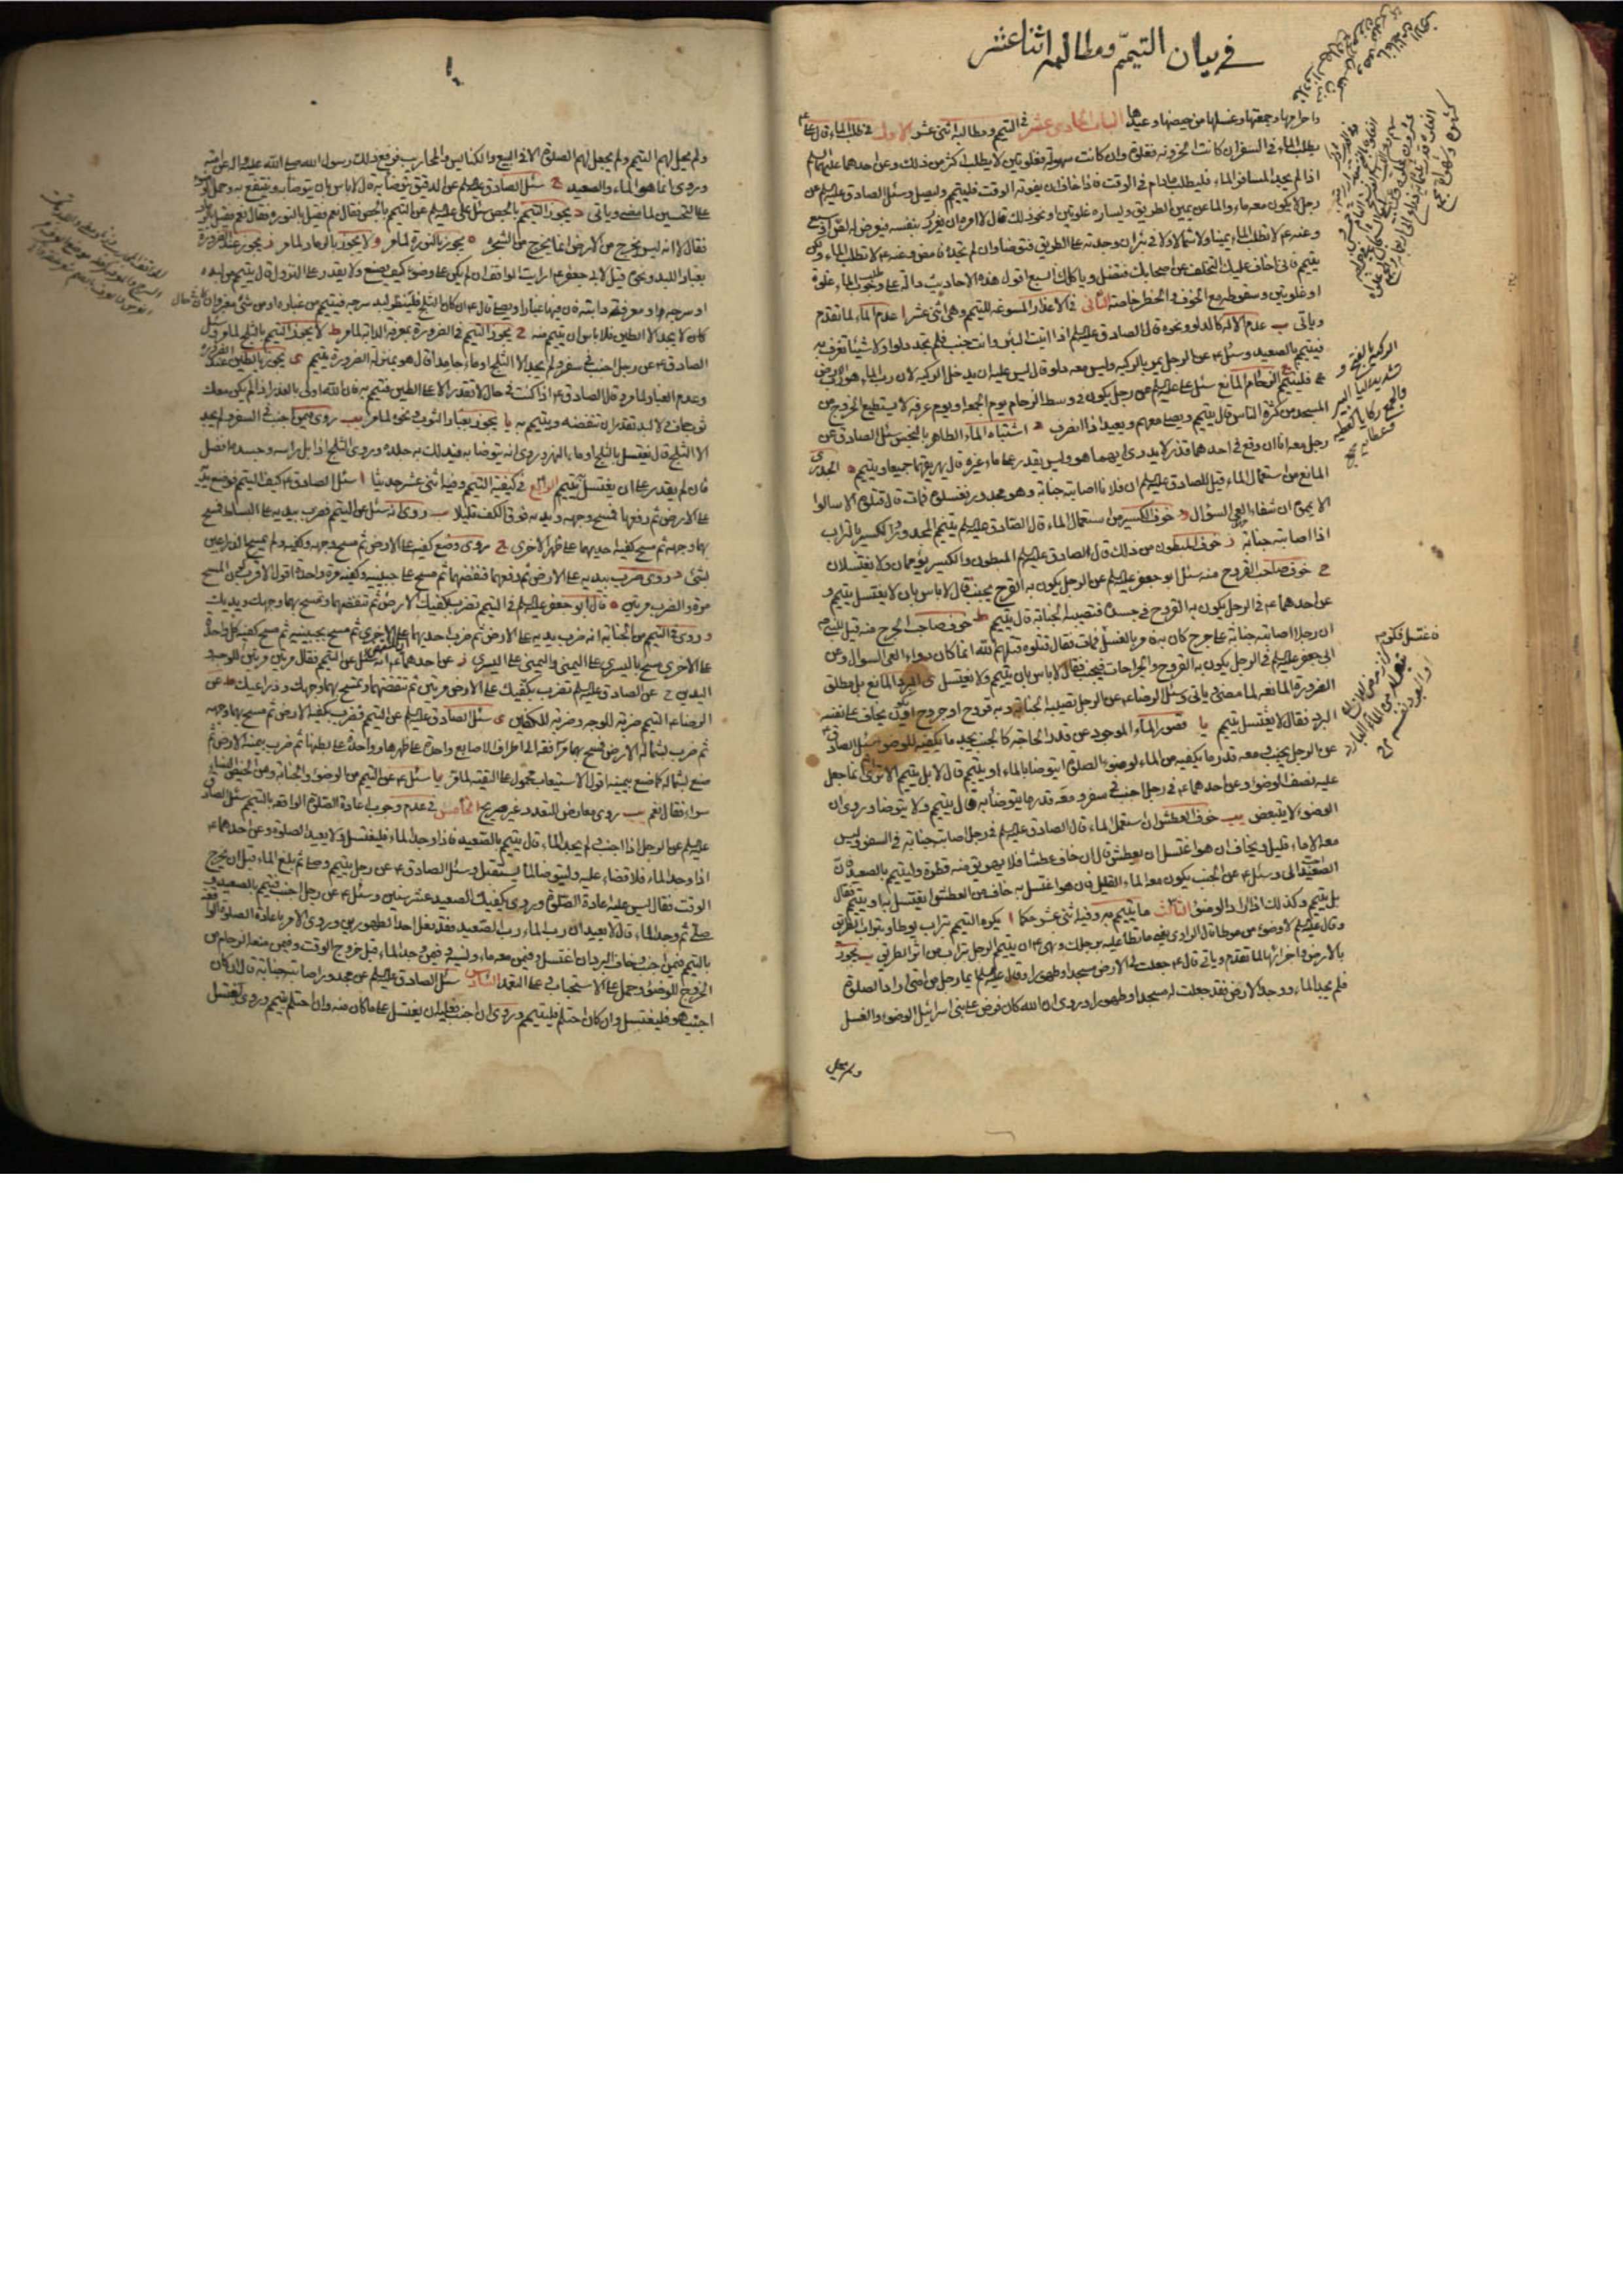 في بيان التيمم ومطالبه اثنا عشر
واحرامها وجمعتها وغسلها من حيضها وعيدها الباب الحادي عشر في التيمم ومطالبه اثنى عشر الاول في طلب الماء قال علي ع
يطلب الماء في السفر ان كانت الحزونة فغلوة وان كانت سهولة فغلوتين لا يطلب اكثر من ذلك وعن احدهما عليهما السلم
اذا لم يجد المسافر الماء فليطلب مادام في الوقت فاذا خاف ان يفوته الوقت فليتيمم وليصل وسئل الصادق عليه السلم عن
رجل لا يكون معه ماء والماء عن يمين الطريق ويساره غلوتين او نحو ذلك قال لا امره ان يغرر بنفسه فيعرض له لص او سبع
وعنه ع لا تطلب الماء يمينا ولا شمالا ولا في بئر ان وجدته على الطريق فتوضا وان لم تجده فامض وعنه ع لا تطلب الماء ولكن
يتيمم فاني اخاف عليك التخلف عن اصحابك فتضل وياكلك السبع اقول هذه الاحاديث دالة على وجوب طلب الماء غلوة
او غلوتين وسقوطه مع الخوف والخطر خاصة الثاني في الاعذار المسوغة للتيمم وهي اثنى عشر ا عدم الماء لما تقدم
وياتي ب عدم الالة كالدلو ونحوه قال الصادق عليه السلم اذا اتيت البئر وانت جنب فلم تجد دلوا ولا شيئا تغرف به
فتيمم بالصعيد وسئل ع عن الرجل يمر بالركية وليس معه دلو قال ليس عليه ان يدخل الركية لان رب الماء هو رب الارض
فليتيمم ج الزحام المانع سئل علي عليه السلم عن رجل يكون في وسط الزحام يوم الجمعة او يوم عرفة لا يستطيع الخروج من
المسجد من كثرة الناس قال يتيمم ويصلي معهم ويعيد اذا انصرف د اشتباه الماء الطاهر بالنجس سئل الصادق ع عن
رجل معه اناءان وقع في احدهما قذر لا يدري ايهما هو وليس يقدر على ماء غيره قال يهريقهما جميعا ويتيمم ه الجدري
المانع من استعمال الماء قيل للصادق عليه السلم ان فلانا اصابته جنابة وهو مجدور فغسلوه فمات قال قتلوه الا سالوا
الا يمموه ان شفاء العي السؤال و خوف الكسير من استعمال الماء قال الصادق عليه السلم يتيمم المجدور والكسير بالتراب
اذا اصابته جنابة ز خوف المبطون من ذلك قال الصادق عليه السلم المبطون والكسير يؤممان ولا يغتسلان
ح خوف صاحب القروح منه سئل ابو جعفر عليه السلم عن الرجل يكون به القرح يجنب قال لا باس بان لا يغتسل يتيمم و
عن احدهما ع في الرجل يكون به القروح في جسده فتصيبه الجنابة قال يتيمم ط خوف صاحب الجرح منه قيل للنبي ص
ان رجلا اصابته جنابة على جرح كان به فامر بالغسل فمات فقال قتلوه قتلهم الله انما كان دواء العي السؤال وعن
ابي جعفر عليه السلم في الرجل يكون به القروح والجراحات فيجنب فقال لا باس بان يتيمم ولا يغتسل ي البرد المانع بل مطلق
الضرورة المانعة لما مضى وياتي وسئل الرضا ع عن الرجل تصيبه الجنابة وبه قروح او جروح او يكون يخاف على نفسه
البرد فقال لا يغتسل يتيمم يا قصور الماء الموجود عن قدر الحاجة كالجنب يجد ما يكفيه للوضوء سئل الصادق ع
عن الرجل يجنب ومعه قدر ما يكفيه من الماء لوضوء الصلوة ايتوضا بالماء او يتيمم قال لا بل يتيمم الا ترى انما جعل
عليه نصف الوضوء وعن احدهما ع في رجل اجنب في سفر ومعه قدر ما يتوضا به قال يتيمم ولا يتوضا وروي ان
الوضوء لا يتبعض يب خوف العطش ان استعمل الماء قال الصادق عليه السلم في رجل اصابته جنابة في السفر وليس
معه الا ماء قليل ويخاف ان هو اغتسل ان يعطش قال ان خاف عطشا فلا يهريق منه قطرة وليتيمم بالصعيد فان
الصعيد احب الي وسئل ع عن الجنب يكون معه الماء القليل فان هو اغتسل به خاف من العطش ايغتسل به او يتيمم فقال
بل يتيمم وكذلك اذا اراد الوضوء الثالث ما يتيمم به وفيه اثنى عشر حكما ا يكره التيمم بتراب يوطا وبتراب الطريق
وقال عليه السلم لا وضوء من موطا قال الراوي يعني ما تطا عليه برجلك ونهى ع ان يتيمم الرجل بتراب من اثر الطريق ب يجوز
بالارض واجزائها لما تقدم وياتي قال ع جعلت لي الارض مسجدا وطهورا وقال عليه السلم ايما رجل من امتي اراد الصلوة
فلم يجد الماء ووجد الارض فقد جعلت له مسجدا وطهورا وروي ان الله كان فرض على بني اسرائيل الوضوء والغسل
ولم يحل
ولم يحل لهم التيمم ولم يجعل لهم الصلوة الا في البيع والكنايس والمحاريب فرفع ذلك رسول الله صلى الله عليه واله عن امته
وروي انما هو الماء والصعيد ج سئل الصادق عليه السلم عن الدقيق يتوضا به قال لا باس بان يتوضا به وينتفع به وحمل الوضوء
على التحسين لما مضى وياتي د يجوز التيمم بالجص سئل علي عليه السلم عن التيمم بالجص فقال نعم فقيل بالنورة فقال نعم فقيل بالرماد
فقال لا انه ليس يخرج من الارض انما يخرج من الشجر ه يجوز بالنورة لما مر و لا يجوز بالرماد لما مر ز يجوز عند الضرورة
بغبار اللبد ونحوه قيل لابي جعفر ع ارايت المواقف ان لم يكن على وضوء كيف يصنع ولا يقدر على النزول قال يتيمم من لبده
او سرجه او معرفة دابته فان فيها غبارا ويصلي قال ع ان كان في الثلج فلينظر لبد سرجه فيتيمم من غباره او من شيء مغبر وان كان في حال
كان لا يجد الا الطين فلا باس ان يتيمم منه ح يجوز التيمم في الضرورة بمعرفة الدابة لما مر ط لا يجوز التيمم بالثلج لما مر وسئل
الصادق ع عن رجل اجنب في سفر ولم يجد الا الثلج او ماء جامدا قال هو بمنزلة الضرورة يتيمم ي يجوز بالطين عند الضرورة
وعدم الغبار لما مر وقال الصادق ع اذا كنت في حال لا تقدر الا على الطين فتيمم به فان الله اولى بالعذر اذا لم يكن معك
ثوب جاف او لبد تقدر ان تنفضه ويتيمم به يا يجوز بغبار الثوب ونحوه لما مر يب روي فيمن اجنب في السفر ولم يجد
الا الثلج قال يغتسل بالثلج او ماء النهر وروي انه يتوضا به فيدلك به جلده وروي الثلج اذا بل راسه وجسده افضل
فان لم يقدر على ان يغتسل به يتيمم الرابع في كيفية التيمم وفيه اثنى عشر حديثا ا سئل الصادق ع كيف التيمم فوضع يده
على الارض ثم رفعها فمسح وجهه ويديه فوق الكف قليلا ب وروي انه سئل عن التيمم فضرب بيديه على البساط فمسح
بهما وجهه ثم مسح كفيه احديهما على ظهر الاخرى ج وروي وضع كفيه على الارض ثم مسح وجهه وكفيه ولم يمسح الذراعين
بشئ د وروي ضرب بيديه على الارض ثم رفعهما فنفضهما ثم مسح على جبينيه وكفيه مرة واحدة اقول الاقرب كون المسح
مرة والضرب مرتين ه قال ابو جعفر عليه السلم في التيمم تضرب بكفيك الارض ثم تنفضهما وتمسح بهما وجهك ويديك
و وروي في التيمم من الجنابة انه ضرب بيديه على الارض ثم ضرب احديهما على الاخرى ثم مسح بجبينيه ثم مسح كفيه كل واحدة
على الاخرى مسح باليسرى على اليمنى واليمنى على اليسرى ز عن احدهما ع انه سئل عن التيمم فقال مرتين مرتين للوجه و
اليدين ح عن الصادق عليه السلم تضرب بكفيك على الارض مرتين ثم تنفضهما وتمسح بهما وجهك وذراعيك ط عن
الرضا ع التيمم ضربة للوجه وضربة للكفين ي سئل الصادق عليه السلم عن التيمم فضرب بكفيه الارض ثم مسح بهما وجهه
ثم ضرب بشماله الارض فمسح بها مرفقه الى اطراف الاصابع واحدة على ظهرها وواحدة على بطنها ثم ضرب بيمينه الارض ثم
صنع بشماله كما صنع بيمينه اقول الاستيعاب محمول على التقية لما مر يا سئل ع عن التيمم من الوضوء والجنابة ومن الحيض للنساء
سواء فقال نعم يب روي معارض للتعدد غير صريح الخامس في عدم وجوب اعادة الصلوة الواقعة بالتيمم سئل الصادق
عليه السلم عن الرجل اذا اجنب ولم يجد الماء قال يتيمم بالصعيد فاذا وجد الماء فليغتسل ولا يعيد الصلوة وعن احدهما ع
اذا وجد الماء فلا قضاء عليه وليتوضا لما يستقبل وسئل الصادق ع عن رجل تيمم وصلى ثم بلغ الماء قبل ان يخرج
الوقت فقال ليس عليه اعادة الصلوة وروي يكفيك الصعيد عشر سنين وسئل ع عن رجل اجنب فتيمم بالصعيد و
صلى ثم وجد الماء قال لا يعيد ان رب الماء رب الصعيد فقد فعل احد الطهورين وروي الامر باعادة الصلوة الواقعة
بالتيمم فيمن اجنب وخاف البرد ان اغتسل وفيمن معه ماء ونسيه وفيمن وجد الماء قبل خروج الوقت وفيمن منعه الزحام من
الخروج للوضوء وحمل على الاستحباب وعلى التعمد السادس سئل الصادق عليه السلم عن مجدور اصابته جنابة قال ان كان
اجنب هو فليغتسل وان كان احتلم فليتيمم وروي ان اجنب فعليه ان يغتسل على ما كان منه وان احتلم تيمم وروي يغتسل